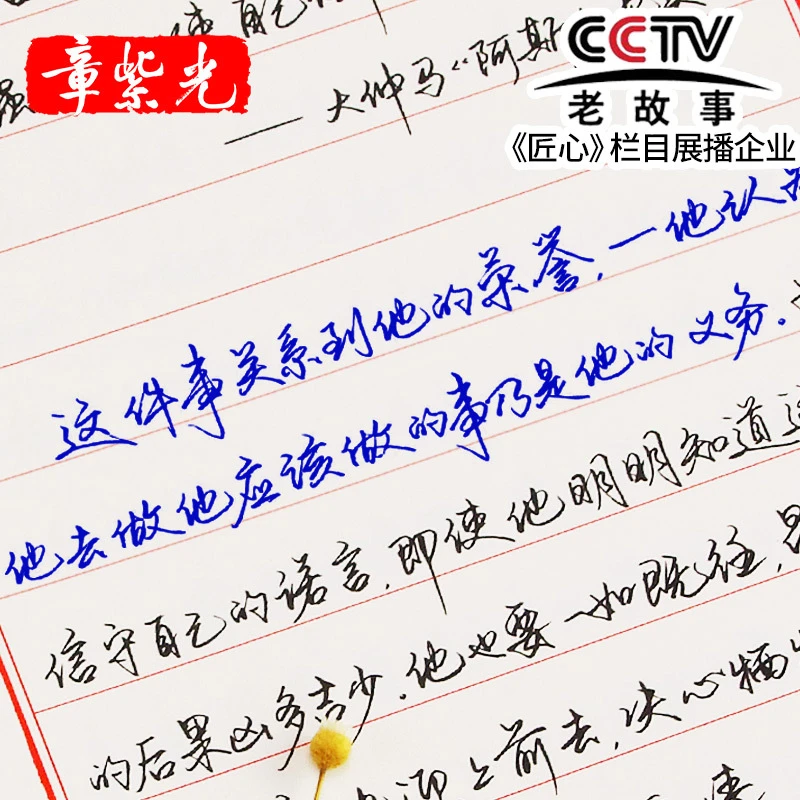 使自己
章紫光
CCTV
老故事
《匠心》栏目展播企业
——大仲马《阿斯
这件事关系到他的荣誉,一他认为
他去做他应该做的事乃是他的义务.
信守自己的诺言,即使他明明知道这
的后果凶多吉少.他也要一如既往,
迎上前去,决心牺